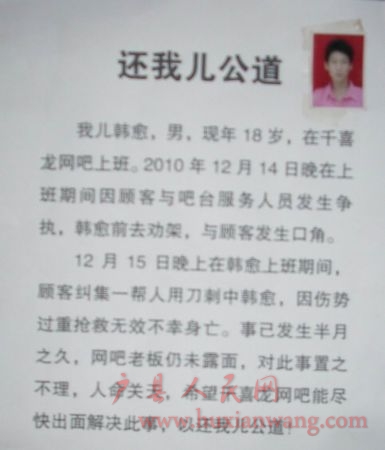 还我儿公道
我儿韩愈，男，现年18岁，在千喜
龙网吧上班。2010年12月14日晚在上
班期间因顾客与吧台服务人员发生争
执，韩愈前去劝架，与顾客发生口角。
12月15日晚上在韩愈上班期间，
顾客纠集一帮人用刀刺中韩愈，因伤势
过重抢救无效不幸身亡。事已发生半月
之久，网吧老板仍未露面，对此事置之
不理，人命关天，希望千喜龙网吧能尽
快出面解决此事，以还我儿公道！
户县人民网
www.huxianwang.com